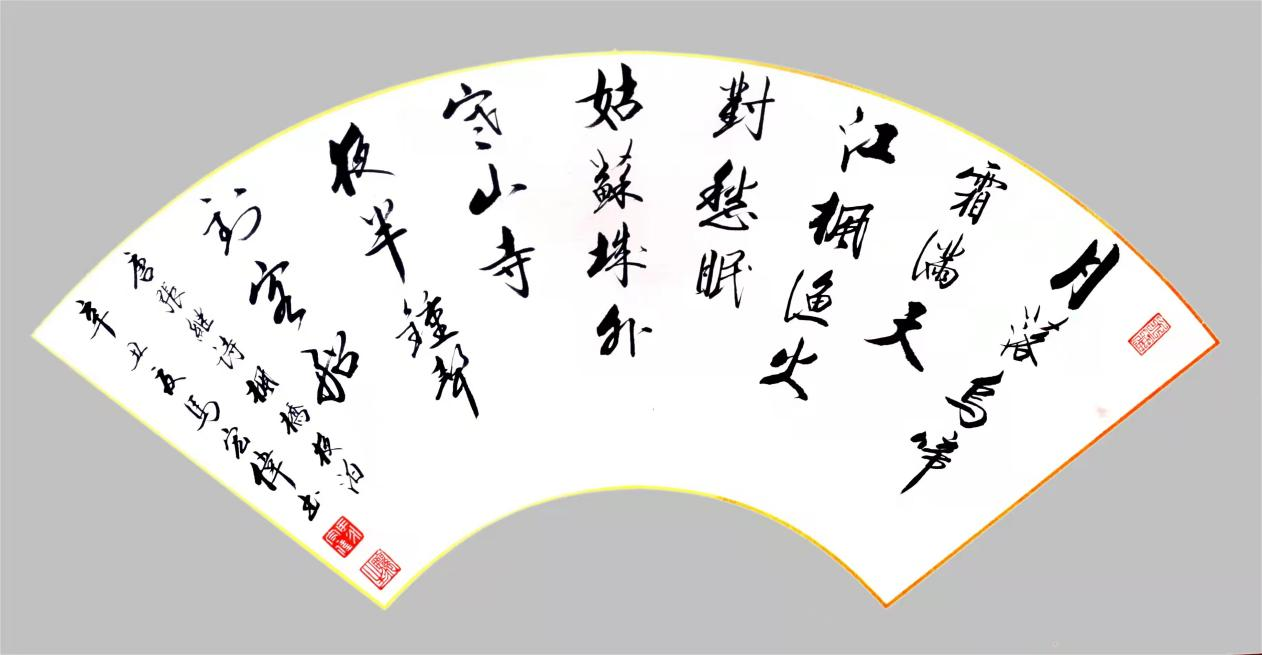 月落烏啼
霜滿天
江楓漁火
對愁眠
姑蘇城外
寒山寺
夜半鍾聲
到客船
唐張繼詩楓橋夜泊
辛丑夏馬宏偉書